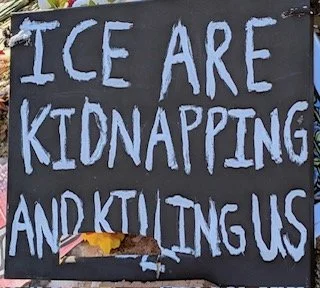 ICE ARE
KIDNAPPING
AND KILLING US